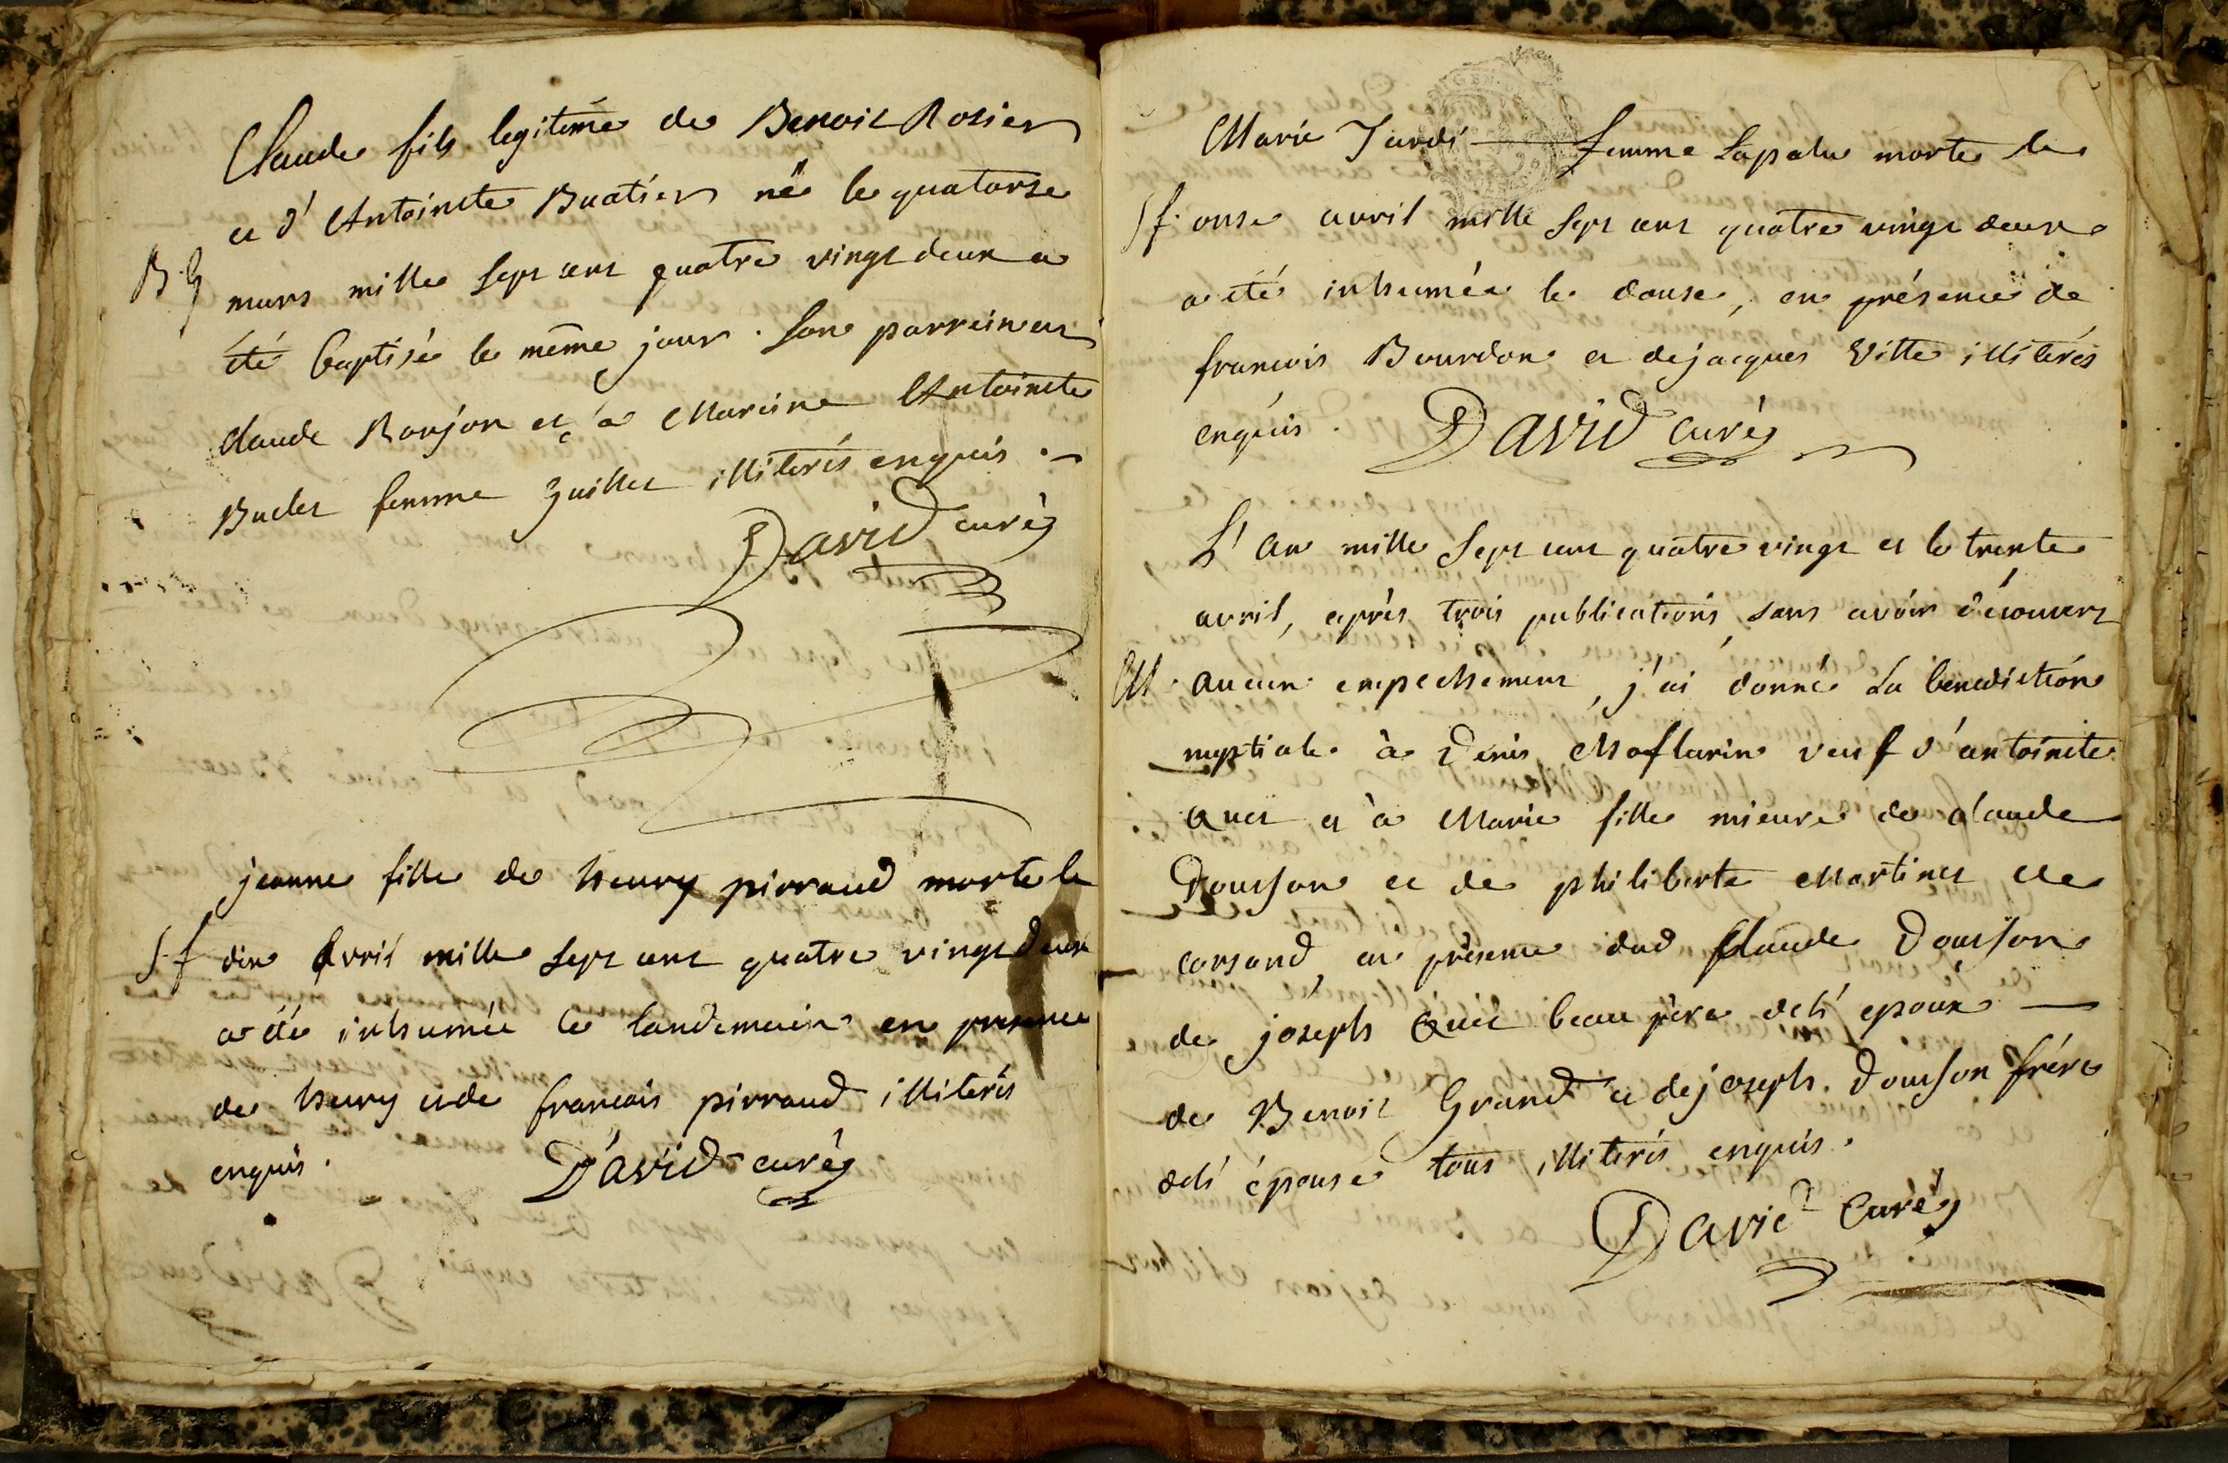 Claude fils legitime de Benoit Rosier
et d'Antoinette Buatier né le quatorse
B. G mars mille sept cent quatre vingt deux a
été baptisé le même jour. Son parrein est
Claude Ronjon et ça Mareine Antoinette
Buclet femme guillet illiterés enquis.
David curé
jeanne fille de heury pirraud morte le
S f dix avril mille sept cent quatre vingt deux
a été inhumée le landemain en presence
de heury et de francois pirraud illiterés
enquis. David curé
Marie Jardi femme Lapalu morte le
S f. onse avril mille sept cent quatre vingt deux
a été inhumée le douse, en présence de
francois Bourdon et de jacques Vitte illiterés
enquis. David curé
L'an mille sept cent quatre vingt et le trente
avril, après trois publications, sans avoir découvert
M. aucun empechement, j'ai donné la benediction
nuptiale à Denis Moflarin veuf d'antoinette
Quet et à Marie fille mieure de Claude
Douson et de philiberte Martinet de
corsand, en présence dud Claude Douson
de joseph Quet beau père ddi epoux
de Benoit Grand et de joseph Douson frére
ddi épouse tous illiterés enquis.
David Curé